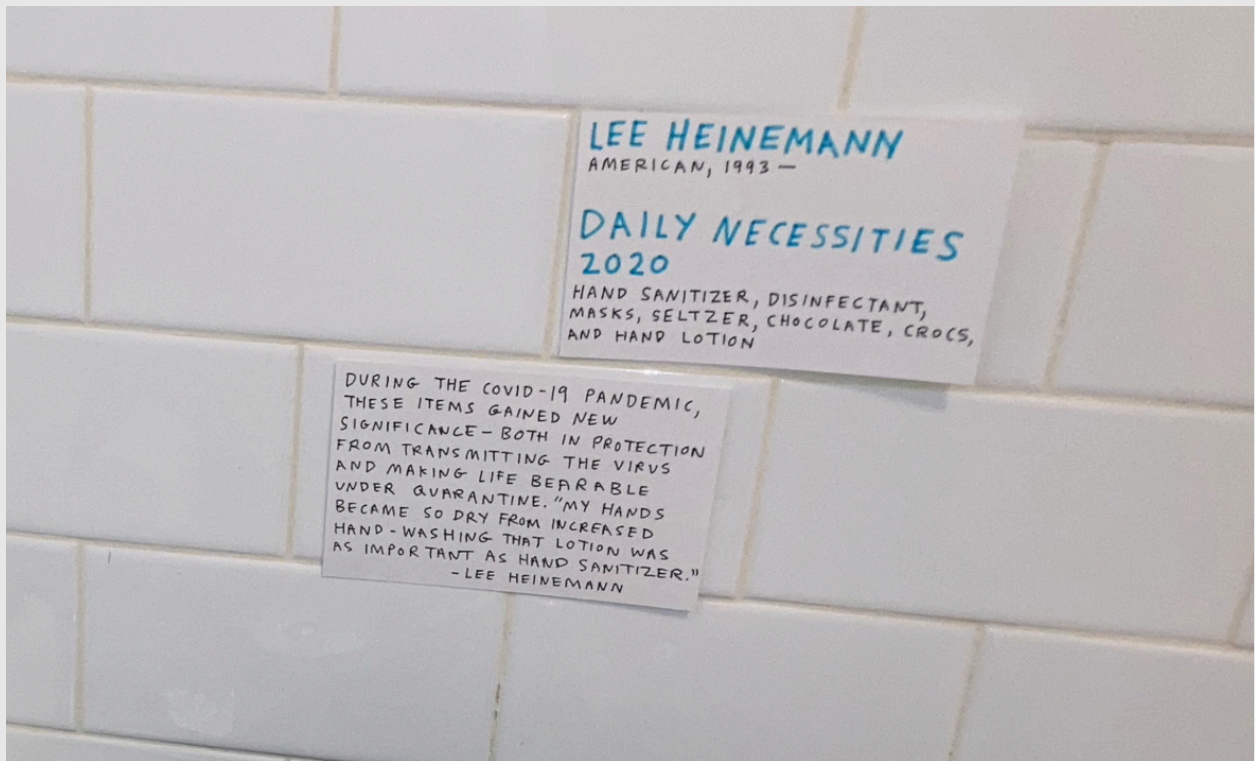 LEE HEINEMANN
AMERICAN, 1993 —
DAILY NECESSITIES
2020
HAND SANITIZER, DISINFECTANT,
MASKS, SELTZER, CHOCOLATE, CROCS,
AND HAND LOTION
DURING THE COVID-19 PANDEMIC,
THESE ITEMS GAINED NEW
SIGNIFICANCE – BOTH IN PROTECTION
FROM TRANSMITTING THE VIRUS
AND MAKING LIFE BEARABLE
UNDER QUARANTINE. "MY HANDS
BECAME SO DRY FROM INCREASED
HAND-WASHING THAT LOTION WAS
AS IMPORTANT AS HAND SANITIZER."
-LEE HEINEMANN